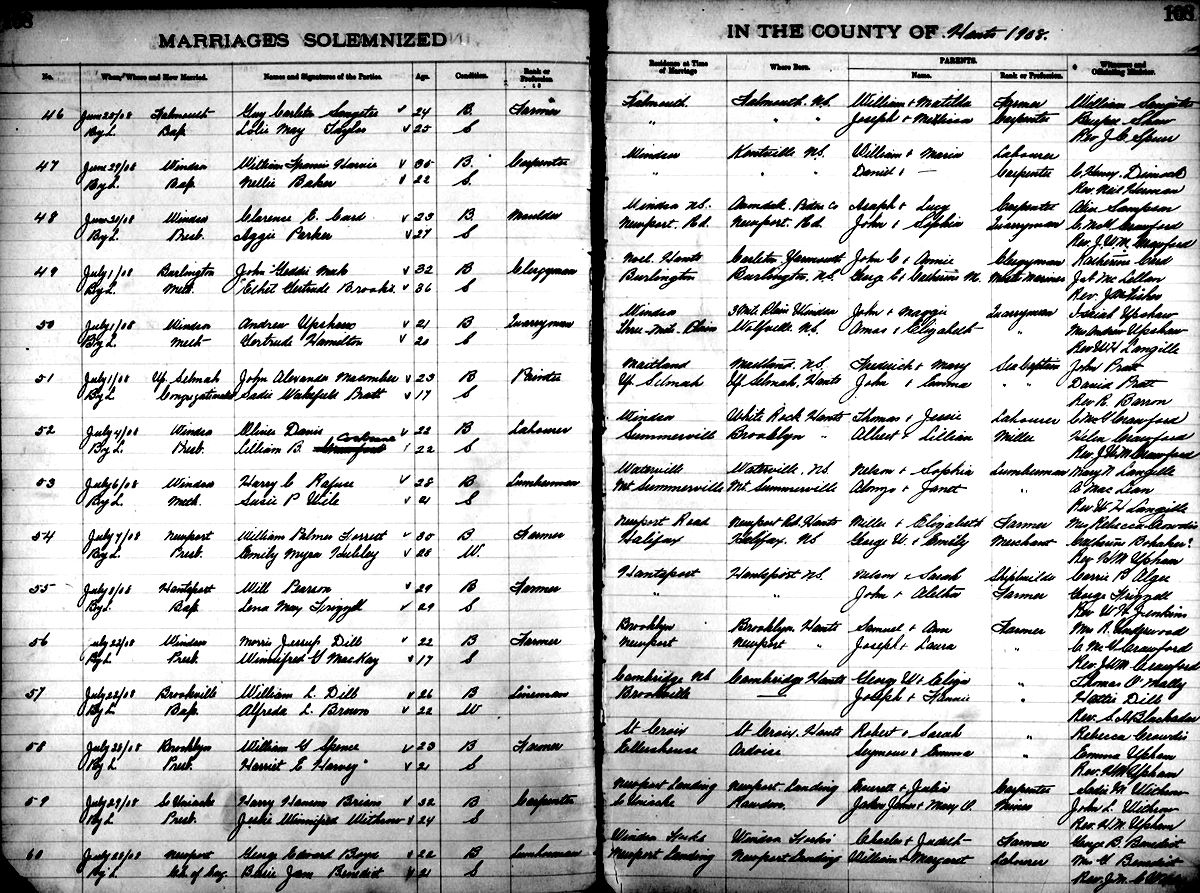 168
MARRIAGES SOLEMNIZED
No. When, Where and How Married. Names and Signatures of the Parties. Age. Condition. Rank or Profession.
46 June 25/08 Falmouth Guy Carleton Sangster 24 B. Farmer
By L. Bap. May Taylor 25 S
47 June 29/08 Windsor William Francis Harvie 35 B. Carpenter
By L. Bap. Nellie Baker 22 S.
48 June 30/08 Windsor Clarence E. Card 23 B. Moulder
By L. Presb. Aggie Parker 27 S
49 July 1/08 Burlington John Geddie Mack 32 B Clergyman
By L. Meth. Ethel Gertrude Brooks. 36 S
50 July 1/08 Windsor Andrew Upshaw 21 B Quarryman
By L. Meth Gertrude Hamilton 20 S
51 July 1/08 Up. Selmah John Alexander Macomber 23 B Painter
By L Congregational Sadie Wakefield Pratt 17 S
52 July 4/08 Windsor Davis 22 B Labourer
Cochrane
By L. Presb. Lillian B. 22 S
53 July 6/08 Windsor Harry C Rafuse 28 B Lumberman
By L. Meth. Susie P Wile 21 S
54 July 7/08 Newport William Palmer Forrest 30 B Farmer
By L. Presb. Emily Myra Hubley 28 W.
55 July 8/08 Hantsport Will Pearson 29 B Farmer
By L Bap. Lena May Frizzell 29 S
56 July 22/08 Windsor Morris Jessup Dill 22 B Farmer
By L Presb. Winnifred G MacKay 17 S
57 July 22/08 Brookville William L. Dill 26 B Lineman
By L Bap. Alfreda L. Brown 22 W
58 July 28/08 Brooklyn William G Spence 23 B Farmer
By L Presb. Harriet E Harvey 21 S
59 July 29/08 C Uniacke Harry Hanson Brison 32 B Carpenter
By L. Presb. Winnifred Withrow 24 S
60 July 28/08 Newport George Edward Boyd 22 B Lumberman
By L. Ch. of Eng. Jane Benedict 21 S
168
IN THE COUNTY OF Hants 1908.
PARENTS.
Residence at Time of Marriage Where Born. Name. Rank or Profession. Witnesses and Officiating Minister.
Falmouth Falmouth. N.S. William + Matilda Farmer William Sangster
" " " Joseph + Carpenter Burpee Shaw
Rev J. C. Spurr
Windsor Kentville N.S. William + Maria Labourer
" " " Daniel + — Carpenter C Henry Dimock
Rev Neil Herman
Windsor N.S. Asaph + Lucy Carpenter Sampson
Newport. Rd. Newport. Rd. John + Sophia Quarryman Crawford
Rev. J. W. M. Crawford
Noel Hants Carleton Yarmouth John C + Annie Clergyman Katherine Card
Burlington Burlington, N.S. Geo. C + Catherine M. Master Mariner
Rev.
Windsor 3 Mile Plain Windsor John + Maggie Quarryman Isaiah Upshaw
Three-Mile Plains Wolfville N.S. Amos + Elizabeth " Mrs Andrew Upshaw
Rev W H Langille
Maitland Maitland. N.S. Frederick + Mary Sea Captain John Pratt
Up Selmah Up Selmah. Hants John + Emma " " David Pratt
Rev R. Barron
Windsor White Rock Hants Thomas + Jessie Labourer Crawford
Summerville Brooklyn " Albert + Lillian Miller Helen Crawford
Rev J. W. M Crawford
Waterville Waterville. N.S. Nelson + Sophia Lumberman Mary N Langille
Mt Summerville Mt Summerville Alonzo + Janet " A MacLean
Rev W. H Langille
Newport Road Newport Rd. Hants Miller + Elizabeth Farmer Mrs Rebecca Crowdis
Halifax Halifax. N.S. George W. + Emily Merchant Catherine
Rev H M Upham
Hantsport Hantsport N.S. Nelson + Sarah Shipbuilder Carrie B
" " John + Alethea Farmer George Frizzell
Rev W. H Jenkins
Brooklyn Brooklyn. Hants Samuel + Ann Farmer Mrs R. Underwood
Newport Newport " Joseph + Laura " Crawford
Rev J W M Crawford
Cambridge N.S. Cambridge Hants George W + Eliza " Thomas O'Mally
Brookville — Joseph + Fannie " Hattie Dill
Rev. S. H Blackadar
St Croix St Croix. Hants Robert + Sarah " Rebecca Crowdis
Ellershouse Ardoise Seymour + Emma " Emma Upham
Rev. H M Upham
Newport Landing Newport Landing + Julia Carpenter Sadie M Withrow
C Uniacke Rawdon James + Mary O. Miner John L. Withrow
Rev. H. M. Upham
Windsor Forks Windsor Forks Charles + Judith Farmer George B. Benedict
Newport Landing Newport Landing William + Margaret Labourer Mrs G Benedict
Rev. J. M.